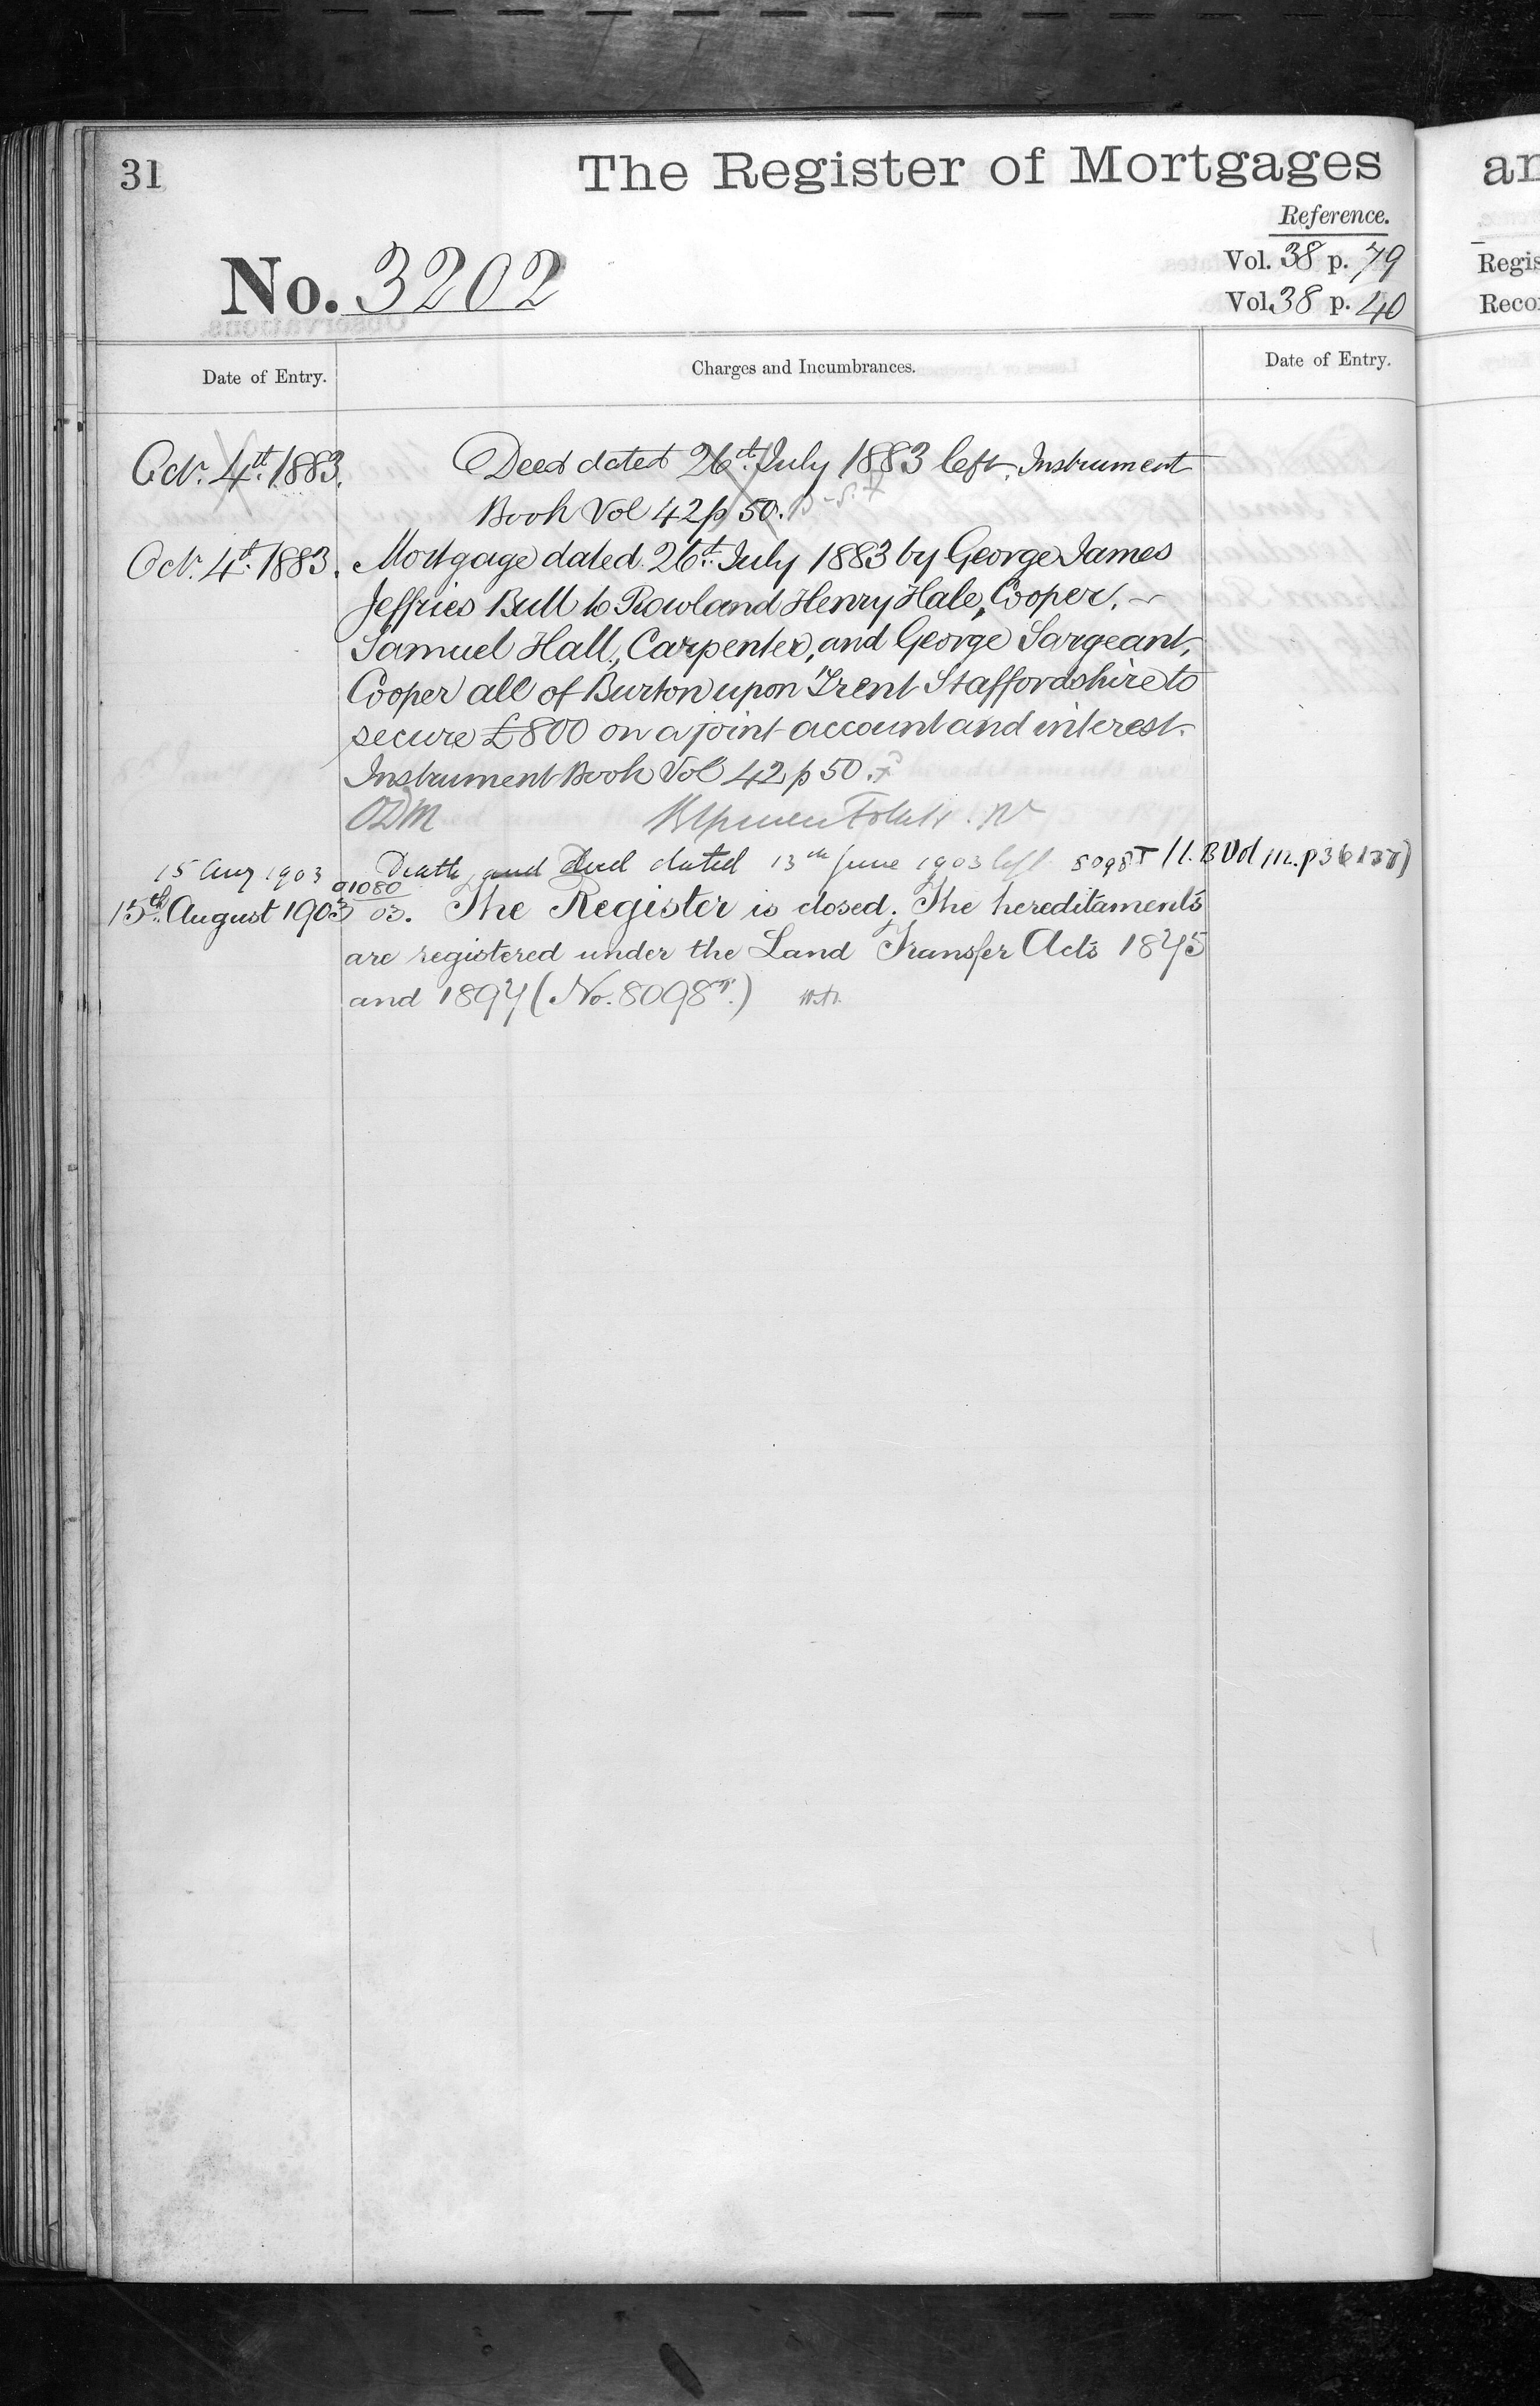 31
The Register of Mortgages
an
Reference.
No. 3202
Vol. 38 p. 79
Regis
Vol. 38 p. 40
Recor
Date of Entry.
Charges and Incumbrances.
Date of Entry.
Oct. 4th. 1883.
Deed dated 26th. July 1883 left. Instrument
Book Vol 42 p 50.
Oct. 4th. 1883.
Mortgage dated 26th. July 1883 by George James
Jeffries Bull to Rowland Henry Hale, Cooper,
Samuel Hall, Carpenter, and George Sargeant,
Cooper all of Burton upon Trent Staffordshire to
secure £800 on a joint account and interest.
Instrument Book Vol 42 p 50.
ODM
15 Aug. 1903
Death and deed dated 13th June 1903 left 8098T (I.B Vol 112. p 36
15th. August 1903
01080
03. The Register is closed. The hereditaments
are registered under the Land Transfer Acts 1875
and 1897 (No. 8098T.)